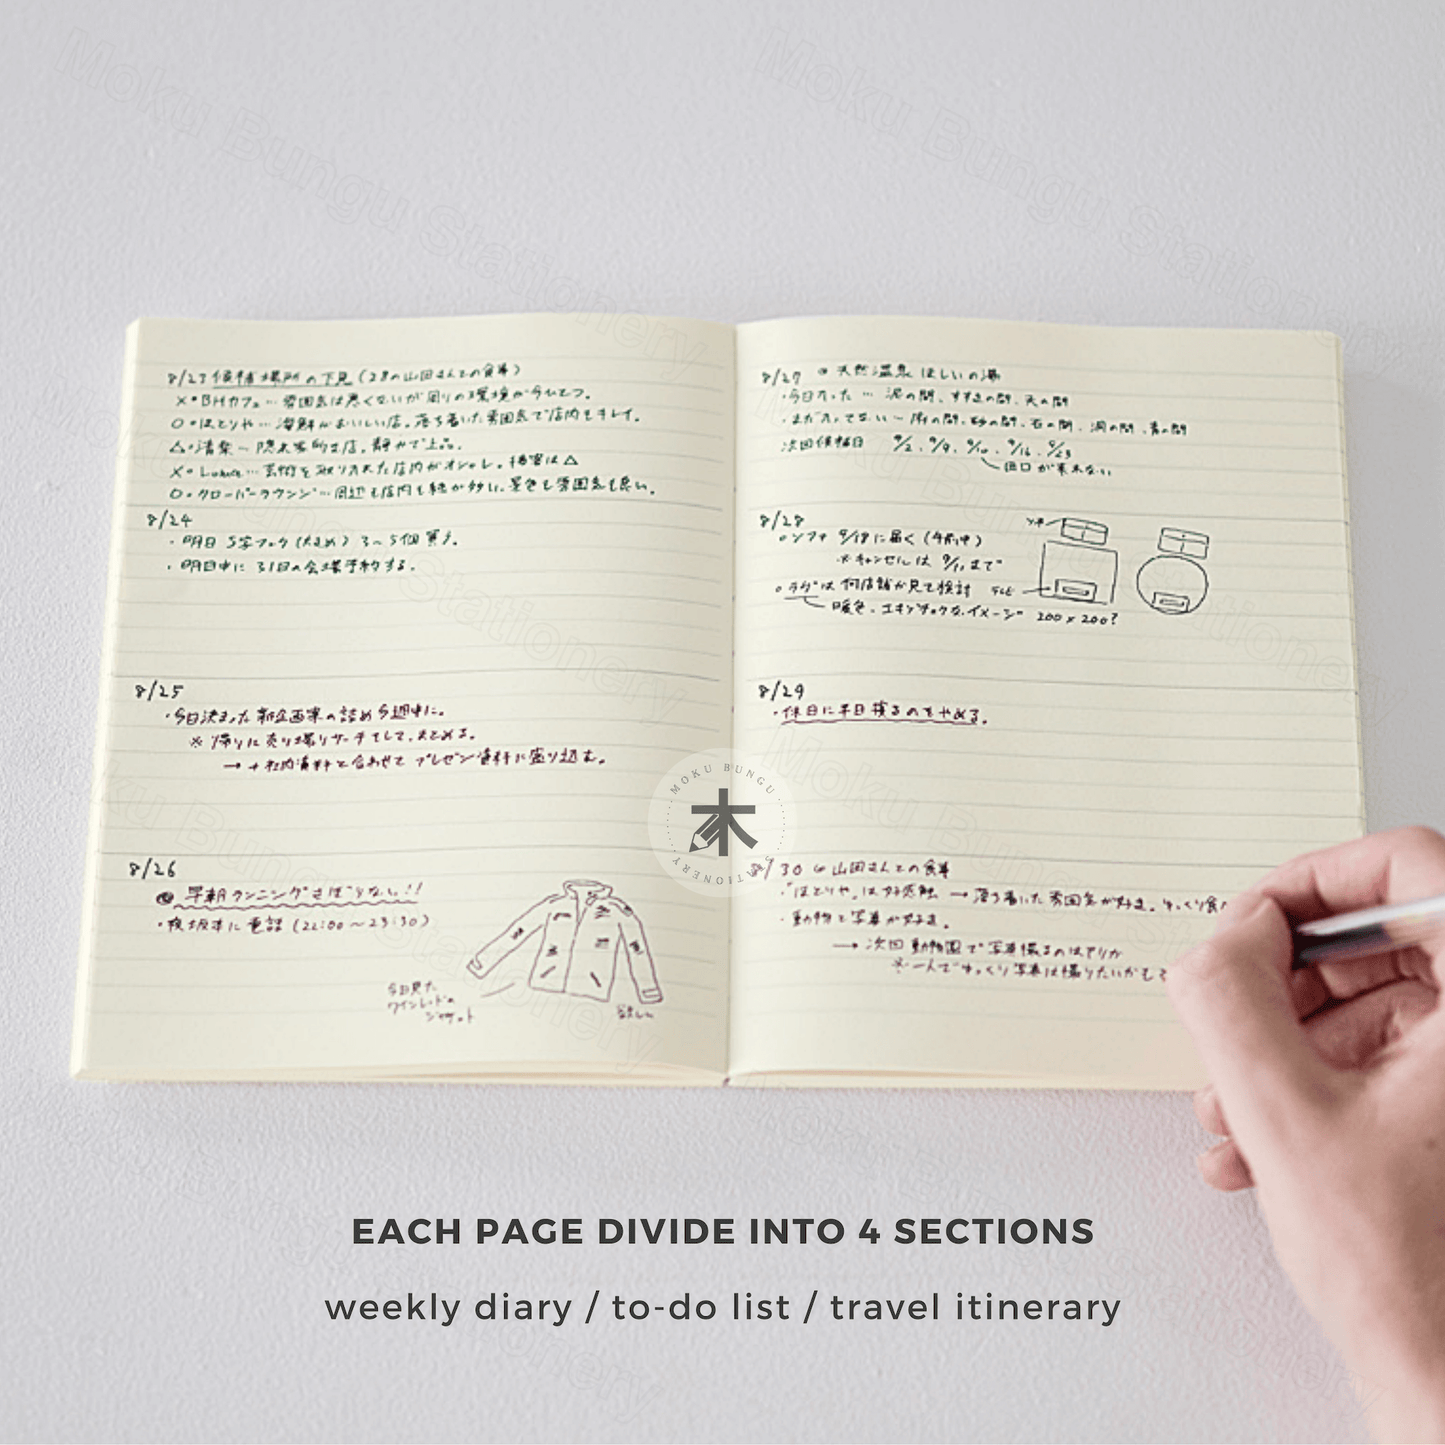 8/23 候補場所の下見 (28の山田さんとの食事)
×・BHカフェ… 雰囲気は悪くないが周りの環境が今ひとつ。
○・ほとりや… 海鮮がおいしい店。落ち着いた雰囲気で店内もキレイ。
△・清楽〜 隠れ家的な店。静かで上品。
×・ … 芸術を取り入れた店内がオシャレ。接客は△
○・クローバーラウンジ… 周辺も店内も緑が多い。景色も雰囲気も良い。
8/24
・明日 S字フック(大きめ) 3〜5個買う。
・明日中に 31日の会場予約する。
8/25
・今日決まった新企画案の詰め今週中に。
※ 帰りに売り場リサーチをして、まとめる。
→ + 社内資料と合わせて プレゼン資料に盛り込む。
8/26
早朝ランニングさぼりなし!!
・夜坂本に電話 (22:00〜23:30)
今日見た
ワインレッドの
ジャケット
欲しい
8/27 天然温泉 ほしいの湯
・今日入った … 泥の間、すすきの間、天の間
・まだ入ってない〜 の間、砂の間、石の間、洞の間、青の間
次回候補日 9/2、9/9、9/10、9/16、9/23
田口が来れない
8/28
○ソファ 9/18に届く (午前中)
※キャンセルは 9/11まで
○ラグは 何店舗か見て検討
暖色、エキゾチックなイメージ 200×200?
ソファ
テレビ
8/29
・休日に平日寝るのをやめる。
8/30 山田さんとの食事
・「ほとりや」は好感触 → 落ち着いた雰囲気が好き。ゆっくり食
・動物と写真が好き。
→ 次回 動物園で写真撮るのはアリか
※一人でゆっくり写真は撮りたいかもして
MOKU BUNGU
木
STATIONERY
EACH PAGE DIVIDE INTO 4 SECTIONS
weekly diary / to-do list / travel itinerary